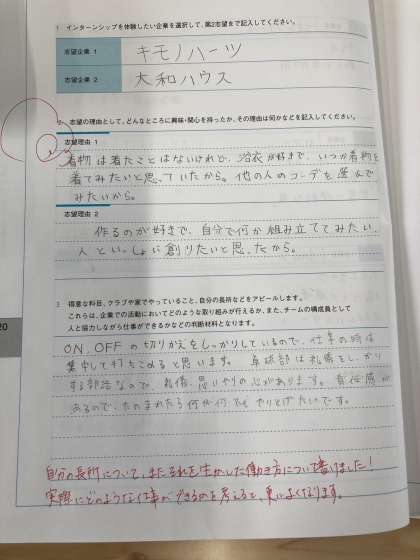 1 インターンシップを体験したい企業を選択して、第2志望まで記入してください。
志望企業 1 キモノハーツ
志望企業 2 大和ハウス
2 志望の理由として、どんなところに興味・関心を持ったか、その理由は何かなどを記入してください。
志望理由 1
着物は着たことはないけれど、浴衣が好きで、いつか着物を
着てみたいと思っていたから。他の人のコーデを選んで
みたいから。
志望理由 2
作るのが好きで、自分で何か組み立ててみたい、
人といっしょに創りたいと思ったから。
3 得意な科目、クラブや家でやっていること、自分の長所などをアピールします。
これらは、企業での活動においてどのような取り組みが行えるか、また、チームの構成員として
人と協力しながら仕事ができるかなどの判断材料となります。
ON、OFFの切りかえをしっかりしているので、仕事の時は
集中して打ちこめると思います。卓球部は礼儀をしっかり
する部活なので、礼儀、思いやりの心があります。責任感が
あるので、たのまれたら何が何でもやりとげたいです。
20
自分の長所について、またそれを生かした働き方について書けました!
実際にどのような仕事ができるのかを考えると、更によくなります。